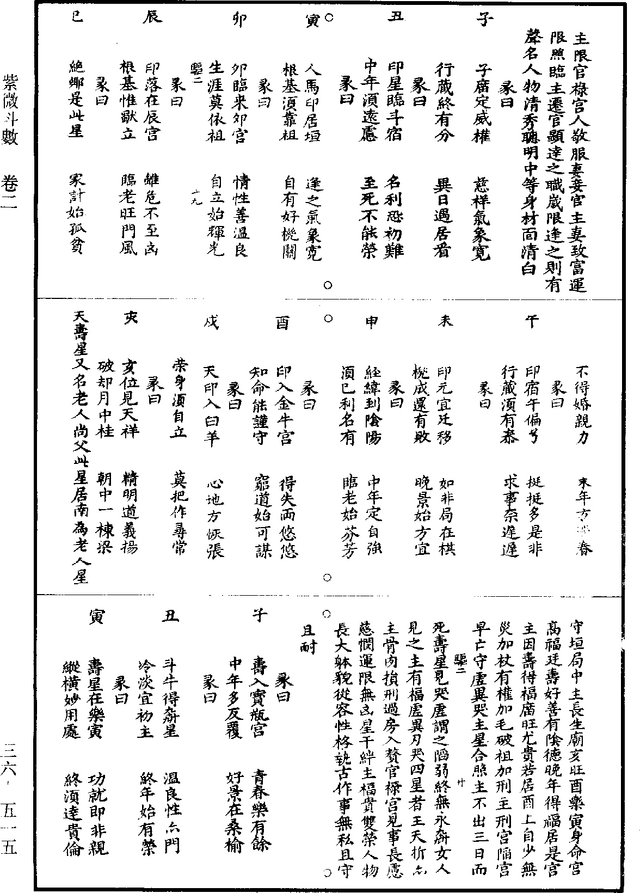 紫微斗數 卷二
三六．五一五
主限官祿宮人敬服妻妾官主妻致富運
限照臨主遷官顯達之職歲限逢之則有
聲名人物清秀聰明中等身材面清白
彖曰
子 子廣定威權 慈祥氣象寬
行藏終有分 異日過居看
彖曰
丑 印星臨斗宿 名利恐初難
中年須遠慮 至死不能榮
彖曰
寅 人馬印居垣 逢之氣象寬
根基須靠祖 自有好機關
彖曰
卯 夘臨來夘宮 情性善溫良
生涯莫依祖 自立始輝光
彖曰
辰 印落在辰宮 雖危不至凶
根基惟獨立 臨老旺門風
彖曰
巳 絕鄉是此星 家計始孤貧
不得婚親力 末年方
彖曰
午 印宿午偏亏 挺挺多是非
行藏須有泰 求事柰遲遲
彖曰
未 印元宜迁移 如非局在棋
機成還有敗 晚景始方宜
彖曰
申 經緯到陰陽 中年定自強
須已利名有 臨老始芬芳
彖曰
酉 印入金牛宮 得失両悠悠
知命能謹守 窮道始可謀
彖曰
戌 天印入白羊 心地方恢張
榮身須自立 莫把作尋常
彖曰
亥 亥位見天祥 精明道義揚
破却月中桂 朝中一棟梁
天壽星又名老人尚父此星居南為老人星
守垣局中主長生廟亥旺酉樂寅身命宮
高福廷壽好善有陰德晚年得福居是宮
主因壽得福廣旺尤貴若居酉上自少無
災加杖有權加毛破祖加刑主刑宮陷宮
早亡守虛異哭主星合照主不出三日而
死壽星見哭虛謂之陷弱終無永壽女人
見之主有福虛異刃哭四星者主夭折六
主骨肉損刑過房入贅官祿宮見事長慮
慈憫運限無凶星干絆主福貴雙榮人物
長大躰貌從容性格就古作事無私且守
且耐
彖曰
子 壽入寶瓶宮 青春樂有餘
中年多反覆 好景在桑榆
彖曰
丑 斗牛得壽星 溫良性六門
冷淡宜初主 終年始有榮
彖曰
寅 壽星在樂寅 功就即非親
縱橫妙用處 終須達貴倫